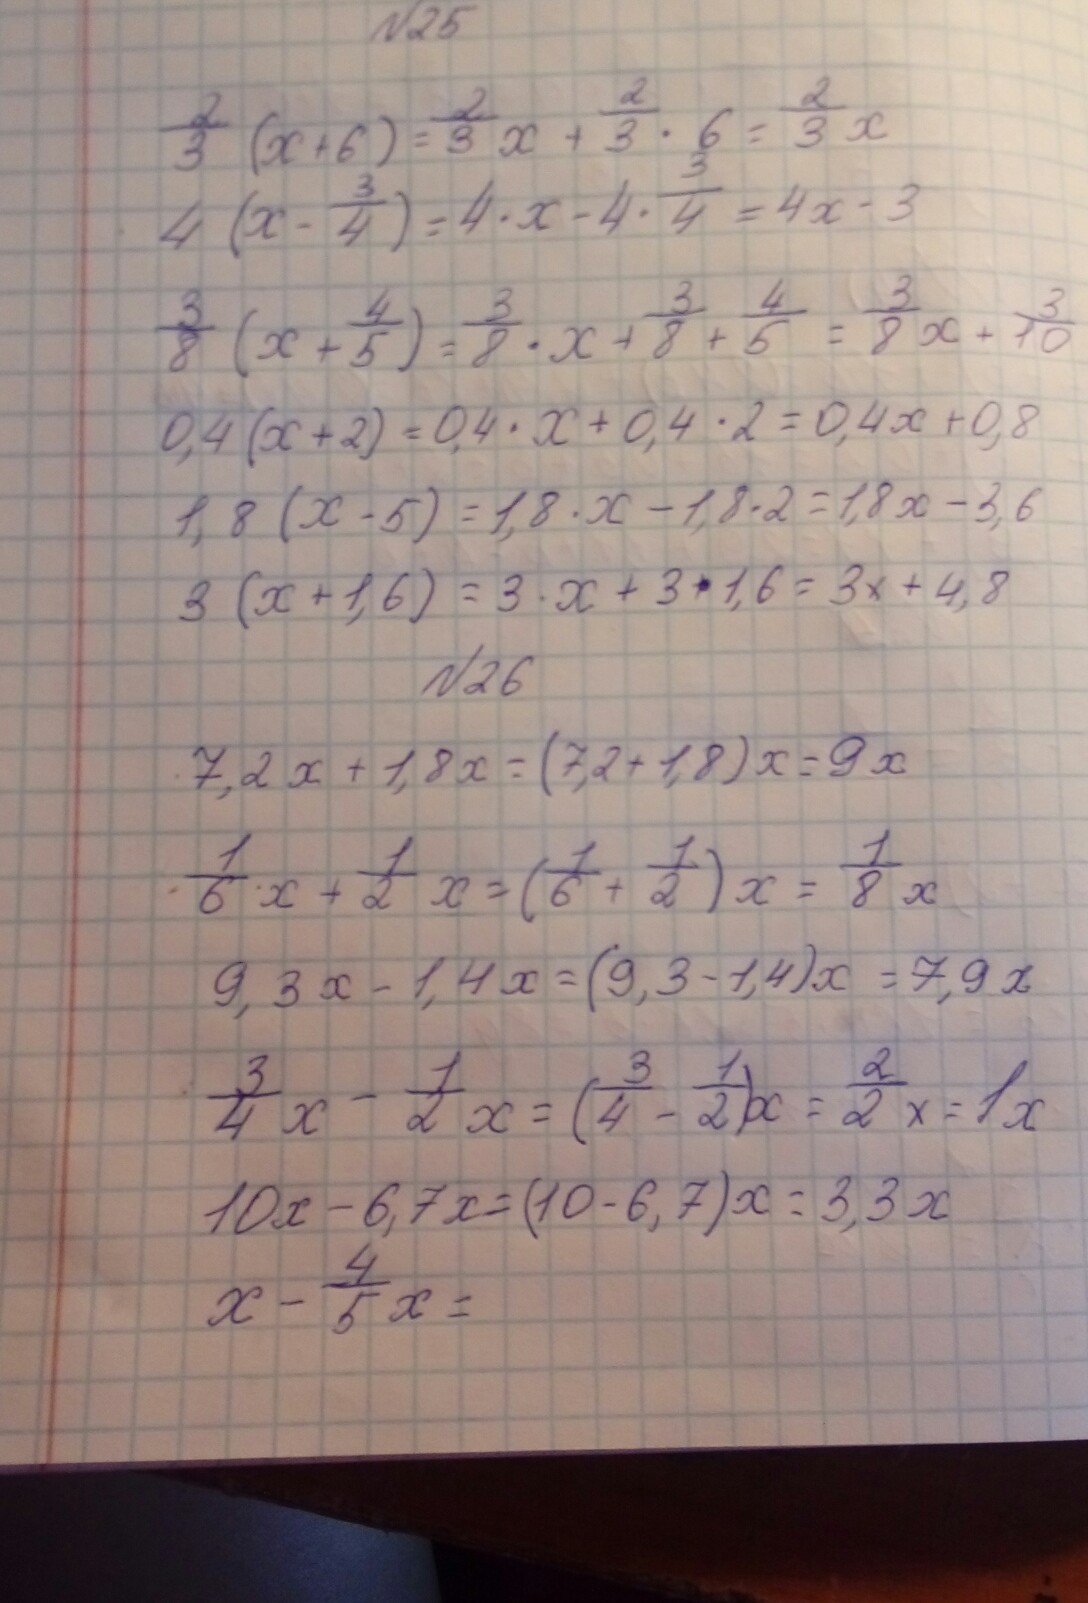 №25
2/3 (x+6) = 2/3 x + 2/3 · 6 = 2/3 x
4 (x - 3/4) = 4·x - 4· 3/4 = 4x - 3
3/8 (x + 4/5) = 3/8 · x + 3/8 + 4/5 = 3/8 x + 3/10
0,4 (x+2) = 0,4·x + 0,4·2 = 0,4x + 0,8
1,8 (x-5) = 1,8·x - 1,8·2 = 1,8x - 3,6
3 (x+1,6) = 3·x + 3·1,6 = 3x + 4,8
№26
7,2x + 1,8x = (7,2+1,8)x = 9x
1/6 ·x + 1/2 x = (1/6 + 1/2)x = 1/8 x
9,3x - 1,4x = (9,3-1,4)x = 7,9x
3/4 x - 1/2 x = (3/4 - 1/2)x = 2/2 x = 1x
10x - 6,7x = (10-6,7)x = 3,3x
x - 4/5 x =